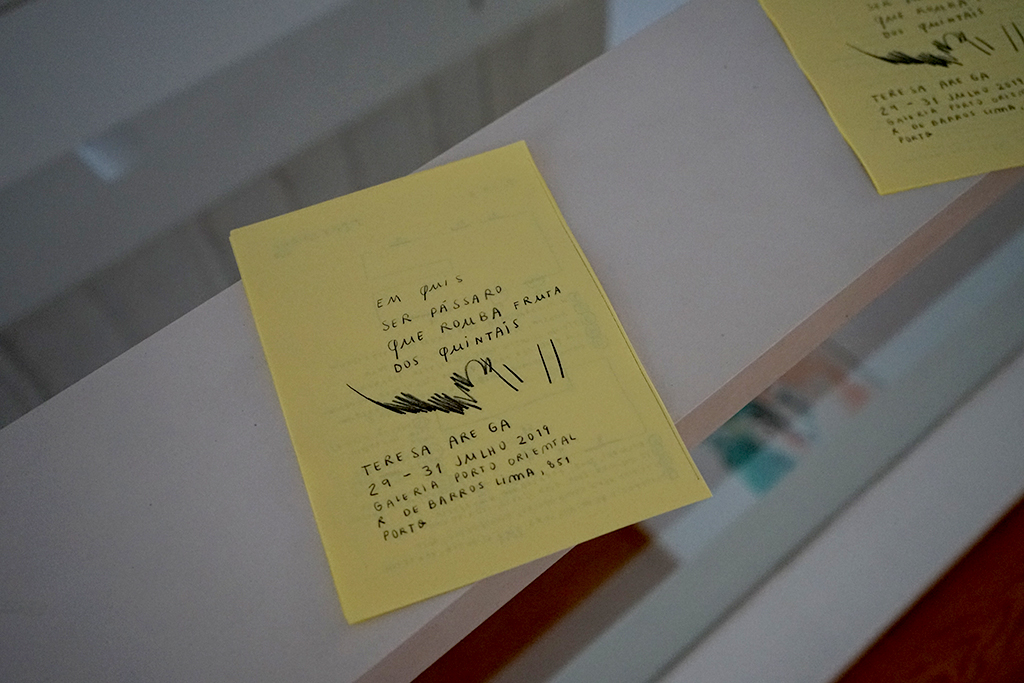 EM QUIS
SER PÁSSARO
QUE ROUBA FRUTA
DOS QUINTAIS
TERESA AREGA
29 - 31 JULHO 2019
GALERIA PORTO ORIENTAL
R. DE BARROS LIMA, 851
PORTO
SER PÁSSARO
QUE ROUBA
DOS QUINTAIS
TERESA AREGA
29 - 31 JULHO 2019
GALERIA PORTO ORIENTAL
R DE BARROS LIMA,
PORTO